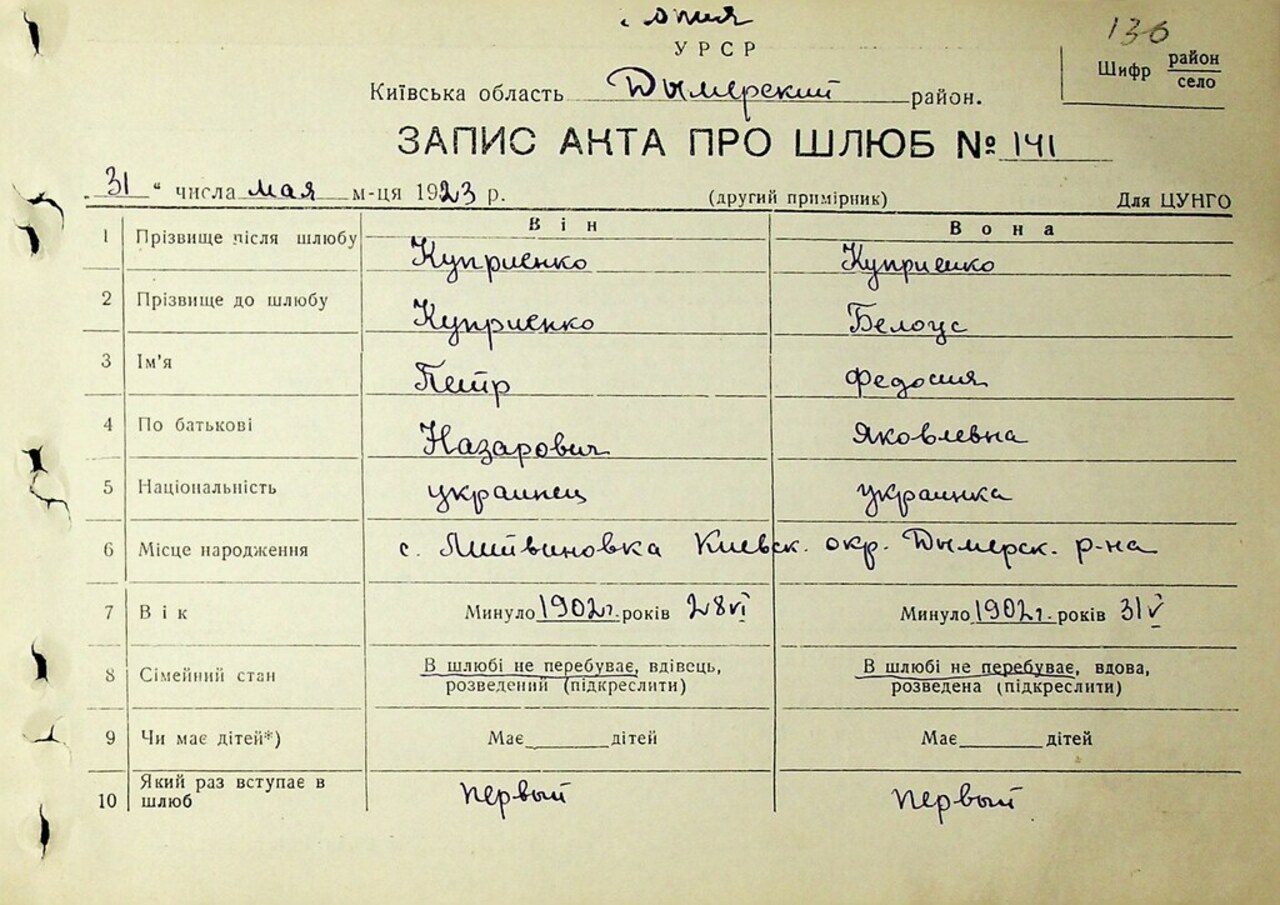 копия
136
УРСР
Шифр район село
Київська область Дымерский район.
ЗАПИС АКТА ПРО ШЛЮБ № 141
„31“ числа мая м-ця 1923 р. (другий примірник) Для ЦУНГО
Він Вона
1 Прізвище після шлюбу Куприенко Куприенко
2 Прізвище до шлюбу Куприенко Белоус
3 Ім'я Петр Федосия
4 По батькові Назарович Яковлевна
5 Національність украинец украинка
6 Місце народження с. Литвиновка Киевск. окр. Дымерск. р-на
7 Вік Минуло 1902г. років 28 VI Минуло 1902г. років 31 V
8 Сімейний стан В шлюбі не перебуває, вдівець, В шлюбі не перебуває, вдова,
розведений (підкреслити) розведена (підкреслити)
9 Чи має дітей*) Має______дітей Має______дітей
10 Який раз вступає в шлюб первый первый